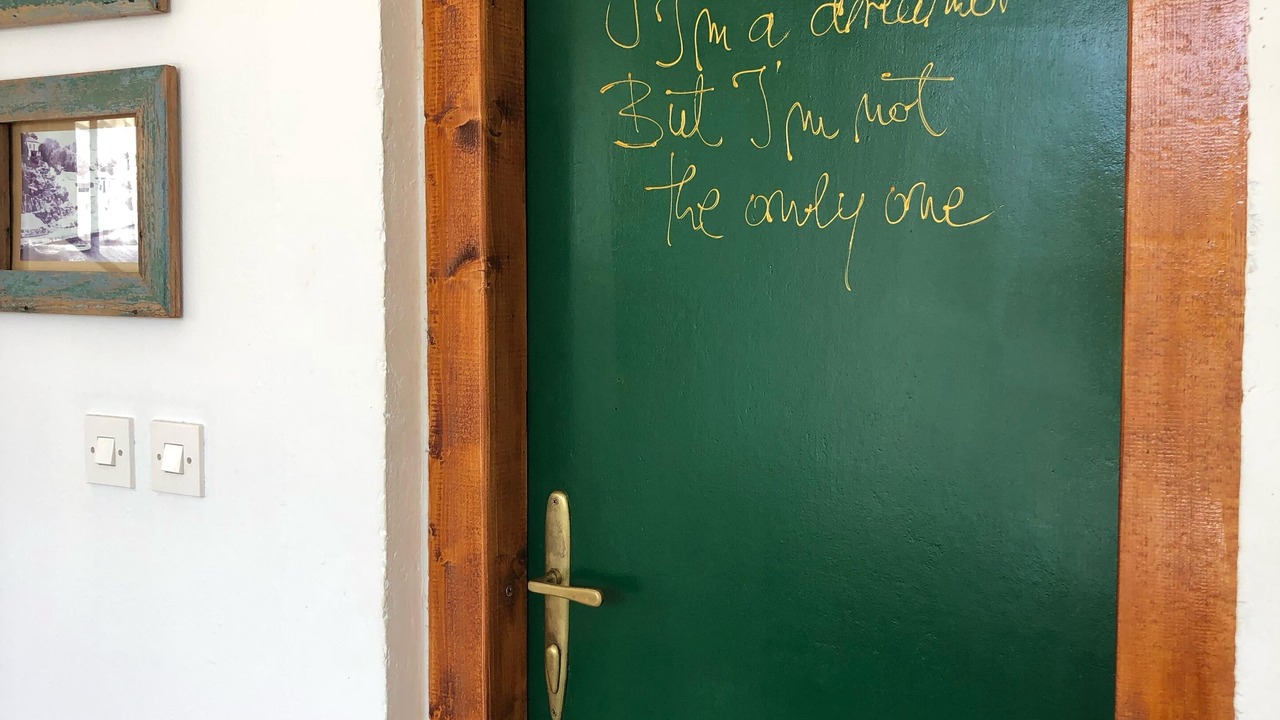 I'm a dreamer
But I'm not
the only one